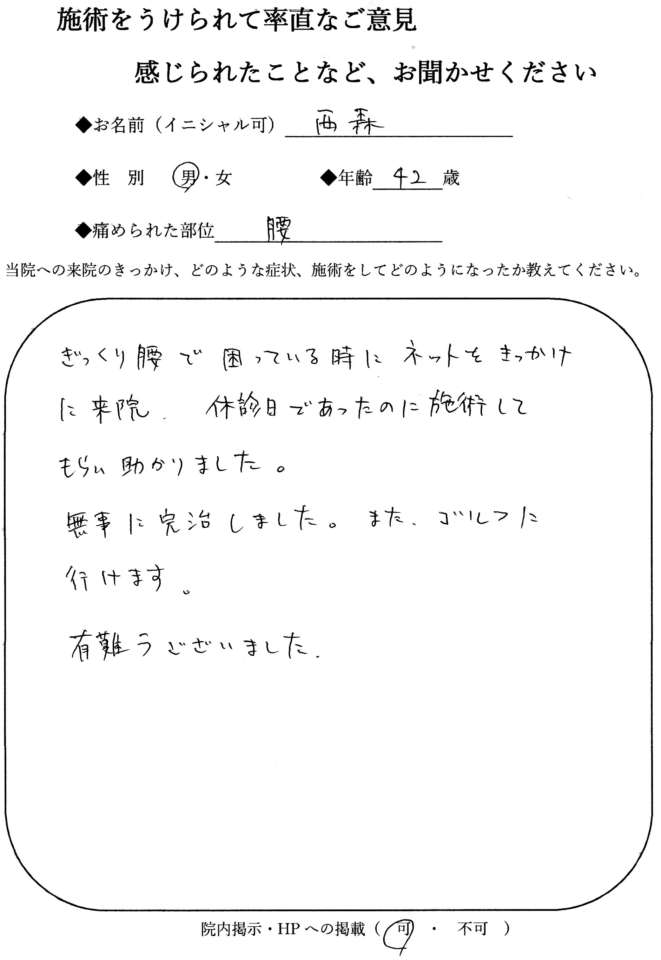 施術をうけられて率直なご意見
感じられたことなど、お聞かせください
◆お名前（イニシャル可） 西森
◆性 別 男・女 ◆年齢 42 歳
◆痛められた部位 腰
当院への来院のきっかけ、どのような症状、施術をしてどのようになったか教えてください。
ぎっくり腰で困っている時にネットをきっかけ
に来院. 休診日であったのに施術して
もらい助かりました。
無事に完治しました。また、ゴルフに
行けます。
有難うございました.
院内掲示・HPへの掲載（ 可 ・ 不可 ）